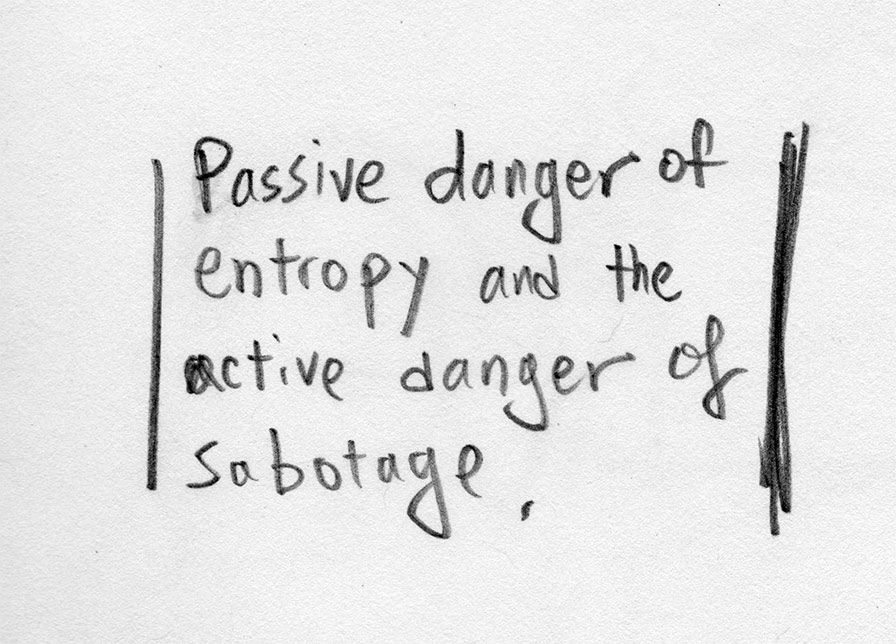 Passive danger of
entropy and the
active danger of
sabotage.